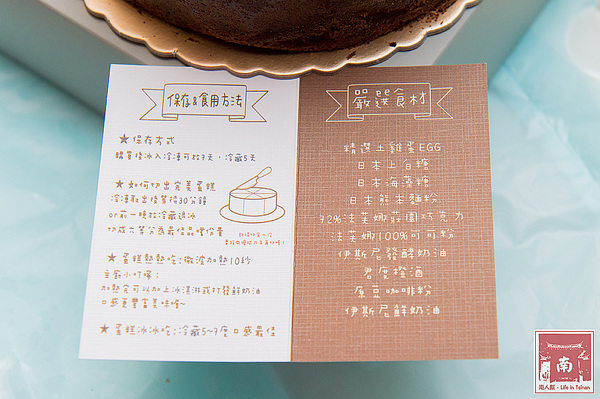 保存&食用方法
★保存方式
購買後冰入冷凍可放7天，冷藏5天
★如何切出完美蛋糕
冷凍取出後等待30分鐘
or前一晚放冷藏退冰
切成六等分為最佳品嚐份量
★蛋糕熱熱吃：微波加熱10秒
主廚小叮嚀：
加熱完可以加上冰淇淋或打發鮮奶油
口感更豐富美味喔~
★蛋糕冰冰吃：冷藏5~7度口感最佳
嚴選食材
精選土雞蛋EGG
日本上白糖
日本海藻糖
日本熊本麵粉
72%法芙娜莊園巧克力
法芙娜100%可可粉
伊斯尼發酵奶油
君度橙酒
原豆咖啡粉
伊斯尼鮮奶油
南
南人幫 - Life in Tainan